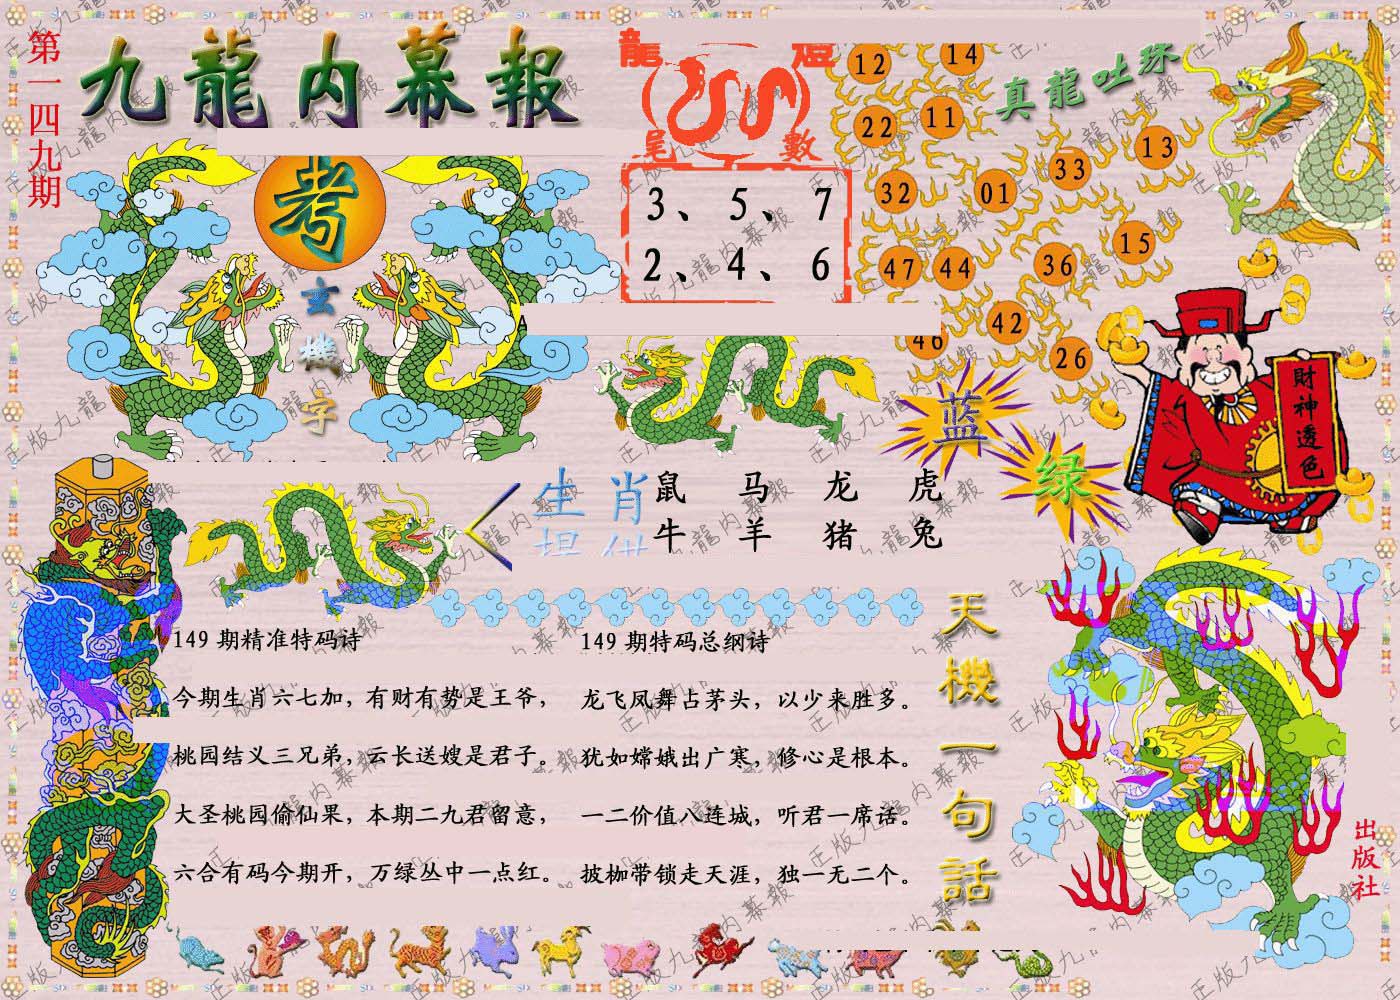 第一四九期
九龍内幕報
考
玄機字
龍 燈
尾 數
3、5、7
2、4、6
12
14
真龍吐珠
22
11
13
33
32
01
15
47
44
36
42
46
26
A
財神透色
蓝
绿
生肖
提供
鼠 马 龙 虎
牛 羊 猪 兔
149 期精准特码诗
今期生肖六七加，有财有势是王爷，
桃园结义三兄弟，云长送嫂是君子。
大圣桃园偷仙果，本期二九君留意，
六合有码今期开，万绿丛中一点红。
149 期特码总纲诗
龙飞凤舞占茅头，以少来胜多。
犹如嫦娥出广寒，修心是根本。
一二价值八连城，听君一席话。
披枷带锁走天涯，独一无二个。
天機一句話
出版社
正版九龍内幕報